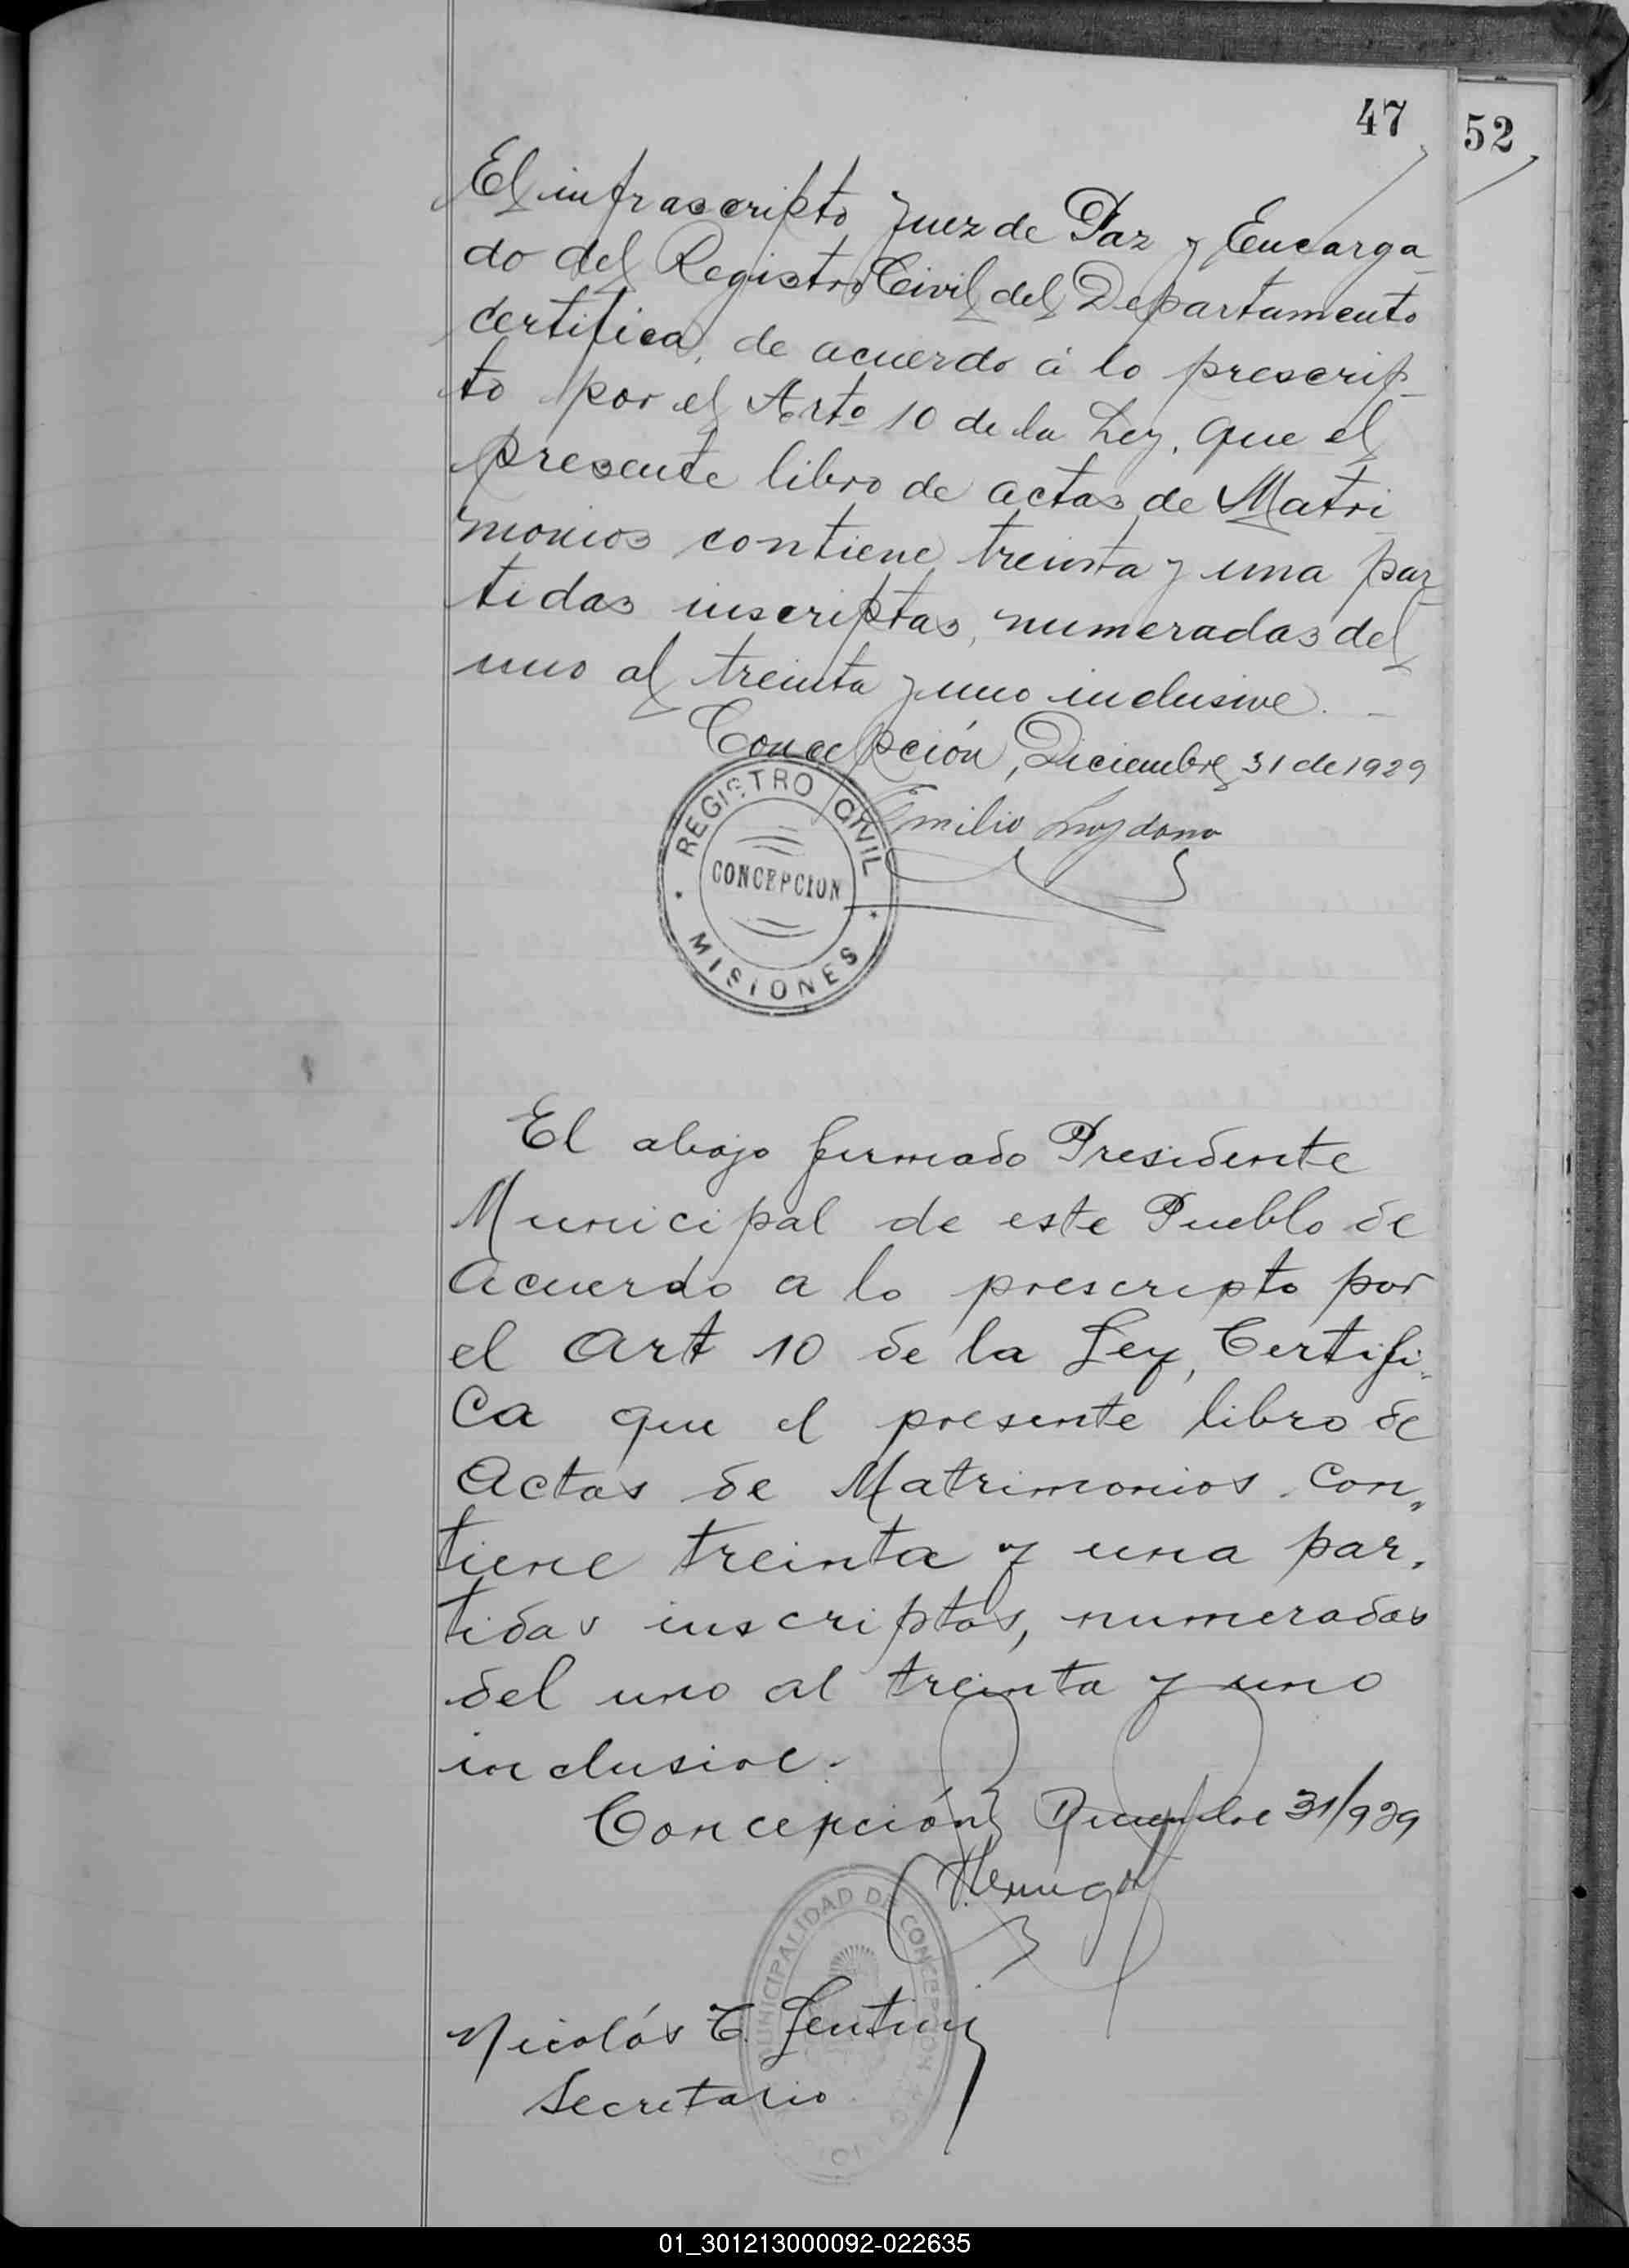 47
52
El infrascripto Juez de Paz y Encarga
do del Registro Civil del Departamento
certifica, de acuerdo á lo prescrip
to por el Arto 10 de la Ley, que el
presente libro de actas de Matri
monios contiene treinta y una par
tidas inscriptas, numeradas del
uno al treinta y uno inclusive.
Concepción, Diciembre 31 de 1929
Emilio
REGISTRO CIVIL
CONCEPCION
MISIONES
El abajo firmado Presidente
Municipal de este Pueblo de
Acuerdo a lo prescripto por
el Art 10 de la Ley, Certifi
ca que el presente libro de
Actas de Matrimonios. Con„
tiene treinta y una par.
tidas inscriptas, numeradas
del uno al treinta y uno
inclusive.
Concepción Diciembre 31/929
MUNICIPALIDAD DE CONCEPCION
Nicolás
Secretario
01_301213000092-022635